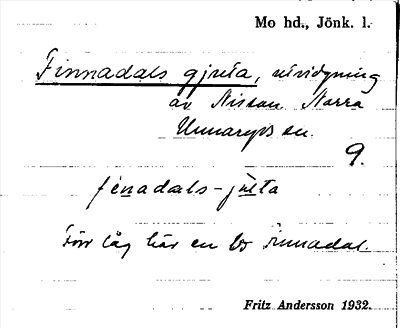 Mo hd., Jönk. l.
Finnadals gjuta, utvidgning
av Nissan Norra
Unnaryds sn.
9.
fenadals-
Förr låg här en Finnadal.
Fritz Andersson 1932.